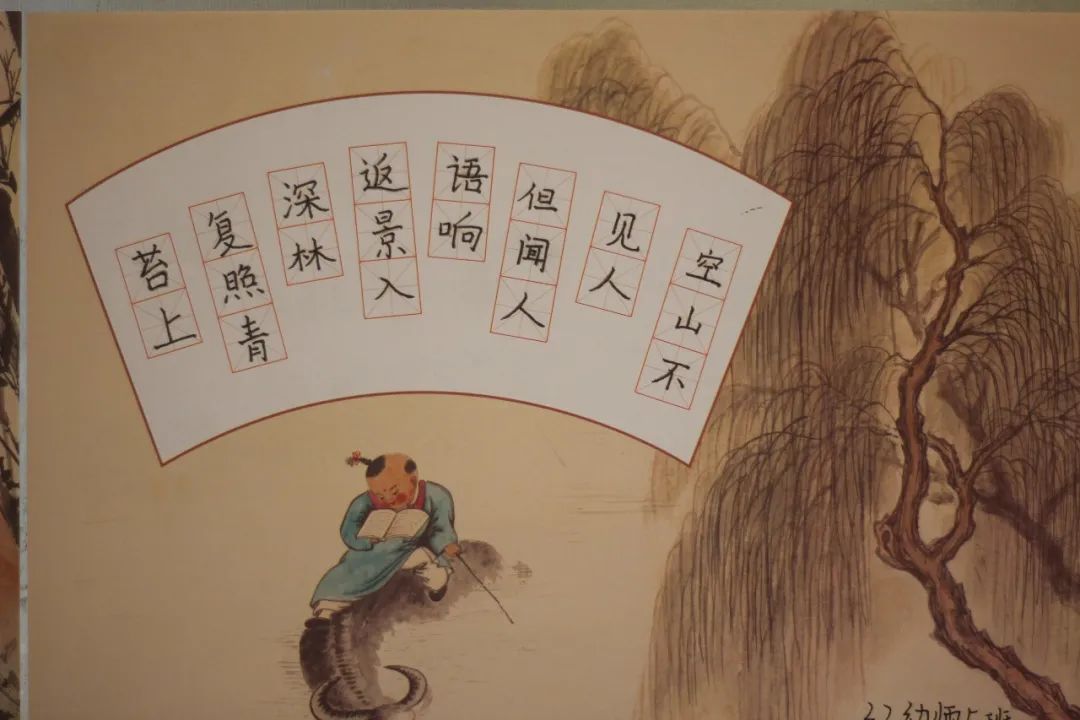 空山不
见人
但闻人
语响
返景入
深林
复照青
苔上
22幼师